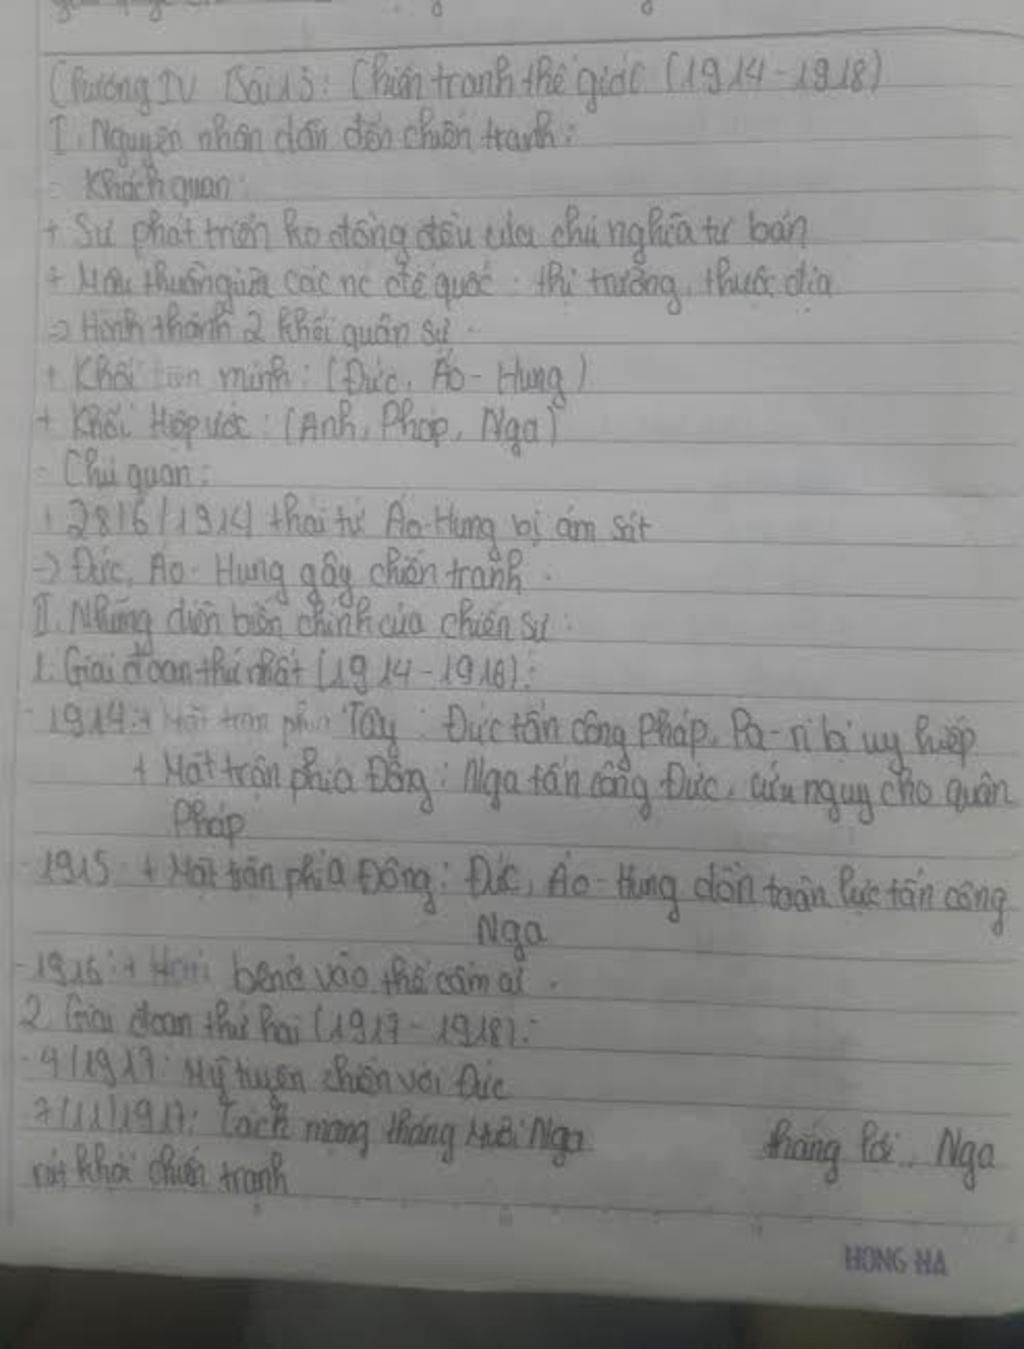 Chương IV Bài 13: Chiến tranh thế giới (1914-1918)
I. Nguyên nhân dẫn đến chiến tranh:
- Khách quan:
+ Sự phát triển ko đồng đều của chủ nghĩa tư bản
+ Mâu thuẫn giữa các nc đế quốc: thị trường, thuộc địa
=> Hình thành 2 khối quân sự.
+ Khối liên minh: (Đức, Áo-Hung)
+ Khối Hiệp ước: (Anh, Pháp, Nga)
- Chủ quan:
+ 28/6/1914 thái tử Áo-Hung bị ám sát
-> Đức, Áo-Hung gây chiến tranh.
II. Những diễn biến chính của chiến sự:
1. Giai đoạn thứ nhất (1914-1916):
- 1914: + Mặt trận phía Tây: Đức tấn công Pháp, Pa-ri bị uy hiếp
+ Mặt trận phía Đông: Nga tấn công Đức, cứu nguy cho quân
Pháp
- 1915: + Mặt trận phía Đông: Đức, Áo-Hung dồn toàn lực tấn công
Nga
- 1916: + Hai bên ở vào thế cầm cự.
2. Giai đoạn thứ hai (1917-1918):
- 4/1917: Mỹ tuyên chiến với Đức
7/11/1917: Cách mạng tháng Mười Nga thắng lợi, Nga
rút khỏi chiến tranh
HONG HA